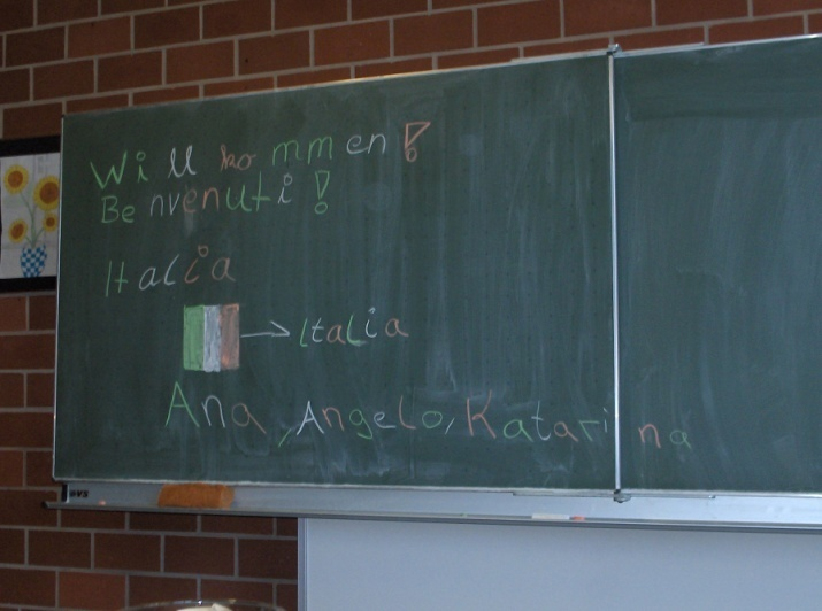 Willkommen!
Benvenuti!
Italia
→ Italia
Ana, Angelo, Katarina